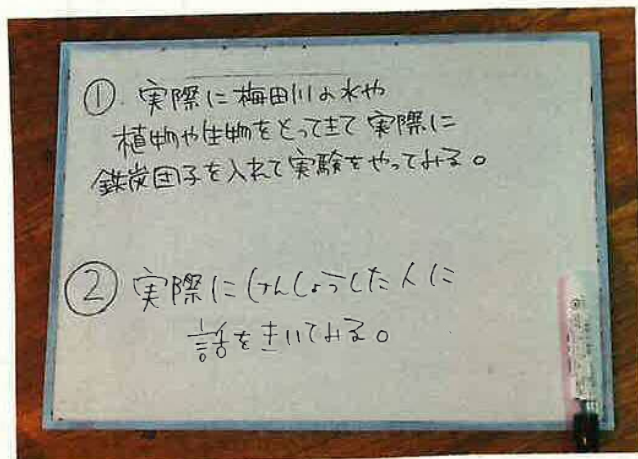 ① 実際に梅田川の水や
植物や生物をとってきて 実際に
鉄炭団子を入れて実験をやってみる。
② 実際にけんしょうした人に
話をきいてみる。